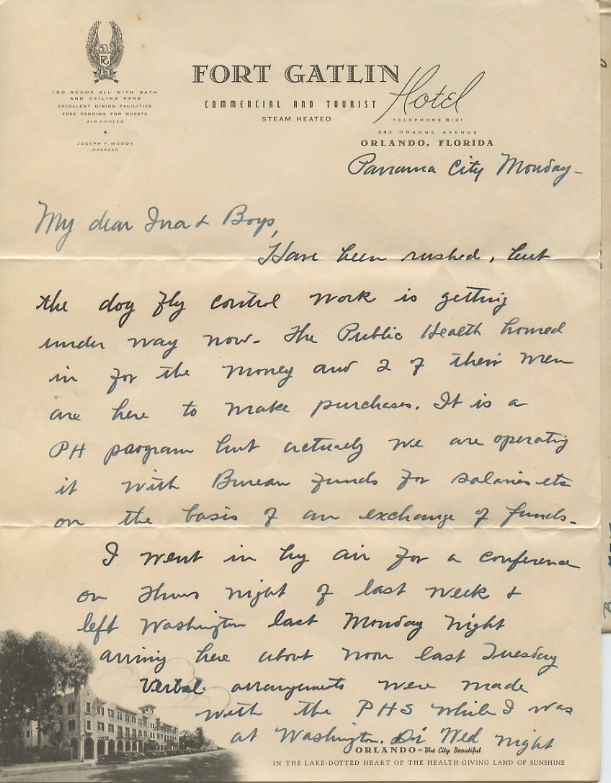 FG
150 ROOMS ALL WITH BATH
AND CEILING FANS
EXCELLENT DINING FACILITIES
FREE PARKING FOR GUESTS
AIR COOLED
JOSEPH F. MOODY
MANAGER
FORT GATLIN Hotel
COMMERCIAL AND TOURIST
STEAM HEATED
TELEPHONE 8121
545 ORANGE AVENUE
ORLANDO, FLORIDA
Panama City Monday -
My dear Ina & Boys,
Have been rushed, but
the dog fly control work is getting
under way now. The Public Health horned
in for the money and 2 of their men
are here to make purchases. It is a
PH program but actually we are operating
it with Bureau funds for salaries etc
on the basis of an exchange of funds.
I went in by air for a conference
on Thurs night of last week &
left Washington last Monday night
arriving here about noon last Tuesday
Verbal arrangements were made
with the PHS while I was
at Washington. Wed night
ORLANDO - The City Beautiful
IN THE LAKE-DOTTED HEART OF THE HEALTH-GIVING LAND OF SUNSHINE